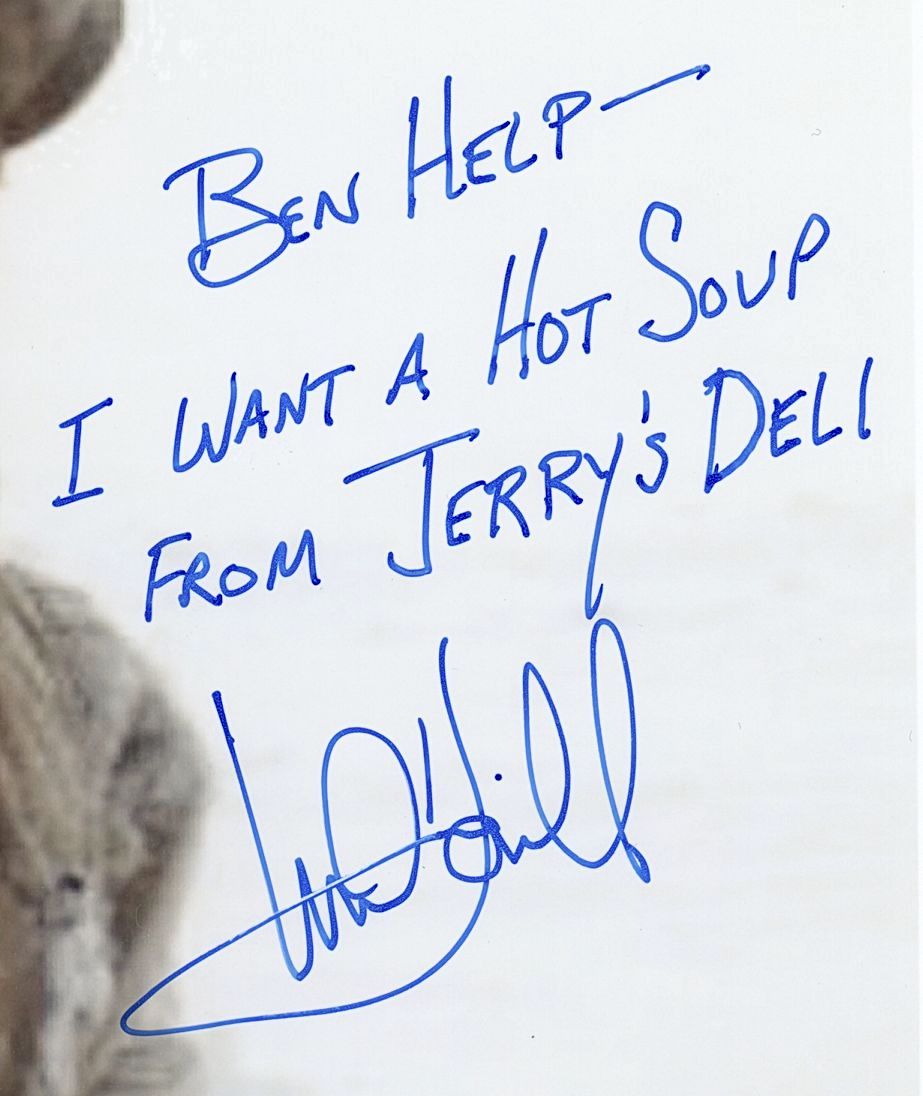 BEN HELP—
I WANT A HOT SOUP
FROM JERRY'S DELI